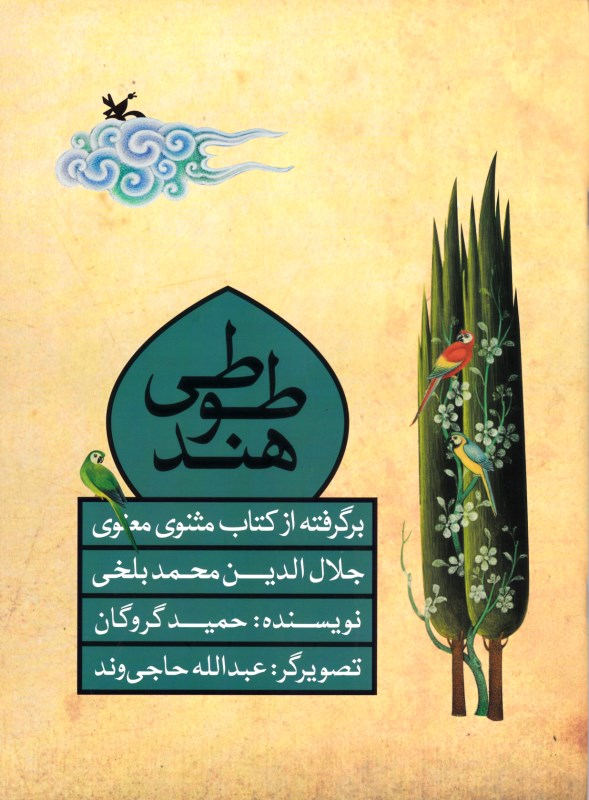 طوطی
هند
برگرفته از کتاب مثنوی معنوی
جلال الدین محمد بلخی
نویسنده: حمید گروگان
تصویرگر: عبدالله حاجی‌وند